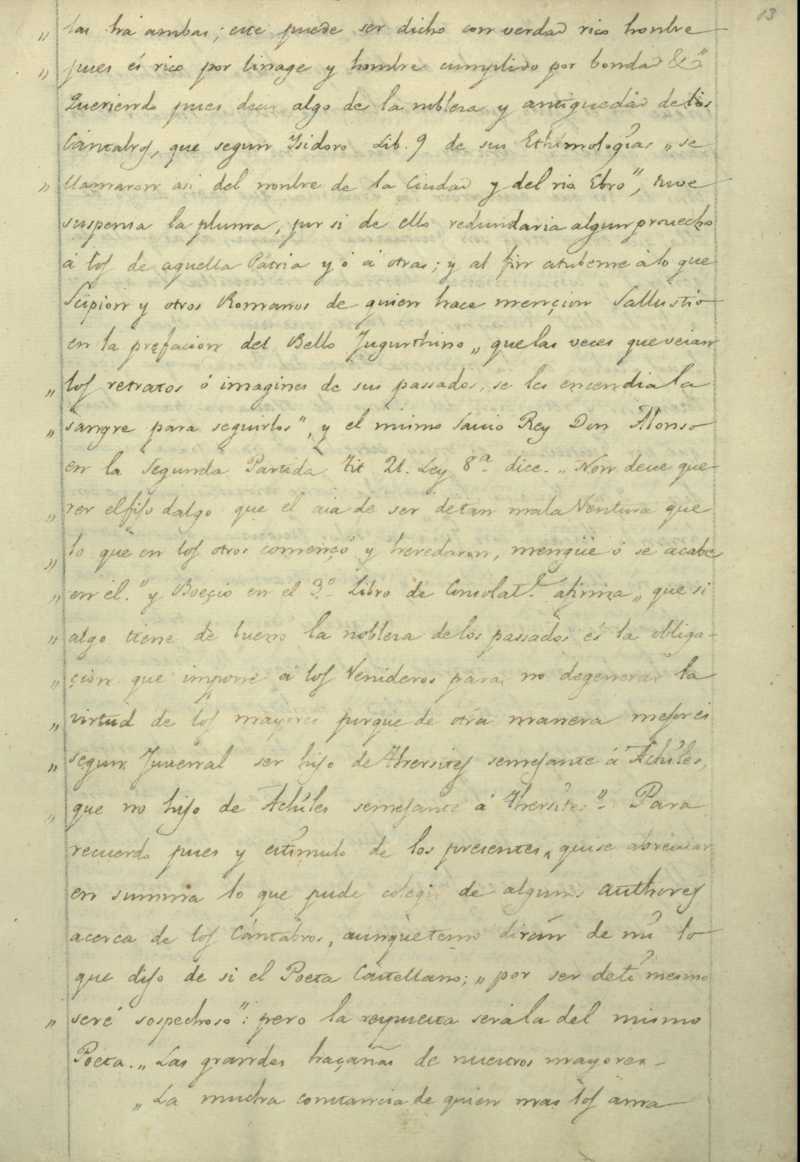 13
„ las há ambas; este puede ser dicho con verdad rico hombre
„ pues és rico por linage y hombre cumplido por bondad &ª"
Queriendo pues decir algo de la nobleza y antiguedad de los
Cántabros, que segun Isidoro Lib. 9 de sus Ethimologías „ se
„ llamaron asi del nombre de la Ciudad y del rio Ebro", tuve
suspensa la pluma, por si de ello redundaria algun provecho
á los de aquella Patria y ó á otras; y al fin atubeme á lo que
Scipion y otros Romanos de quien hace mençion Sallustio
en la prefacion del Bello Jugurthino „ que las veces que veian
„ los retratos ó imagines de sus passados, se les encendia la
„ sangre para seguirlos", y el mismo Savio Rey Don Alonso
en la Segunda Partida Tit 21. Ley 8ª dice. „ Non deve que-
„ rer el fijo dalgo que el aia de ser de tan mala Ventura que
„ lo que en los otros començó y heredaron, mengüe ó se acabe
„ en él." y Boeçio en el 3º Libro de Consolat.e afirma „ que si
„ algo tiene de bueno la nobleza de los passados és la obliga-
„ çion que impone á los Venideros para no degenerar la
„ virtud de los mayores porque de otra manera mejor és
„ segun Juvenal ser hijo de Thersites semejante á Achiles,
„ que no hijo de Achiles semejante á Thersites". Para
recuerdo pues y estímulo de los presentes, quise abreviar
en summa lo que pude colegir de algunos authores
acerca de los Cántabros, aunque temo dirán de mi lo
que dijo de si el Poeta Castellano; „ por ser de ti mesmo
„ seré sospechoso": pero la respuesta será la del mismo
Poeta. „ Las grandes haçañas de nuestros mayores –
„ La mucha constancia de quien mas los ama